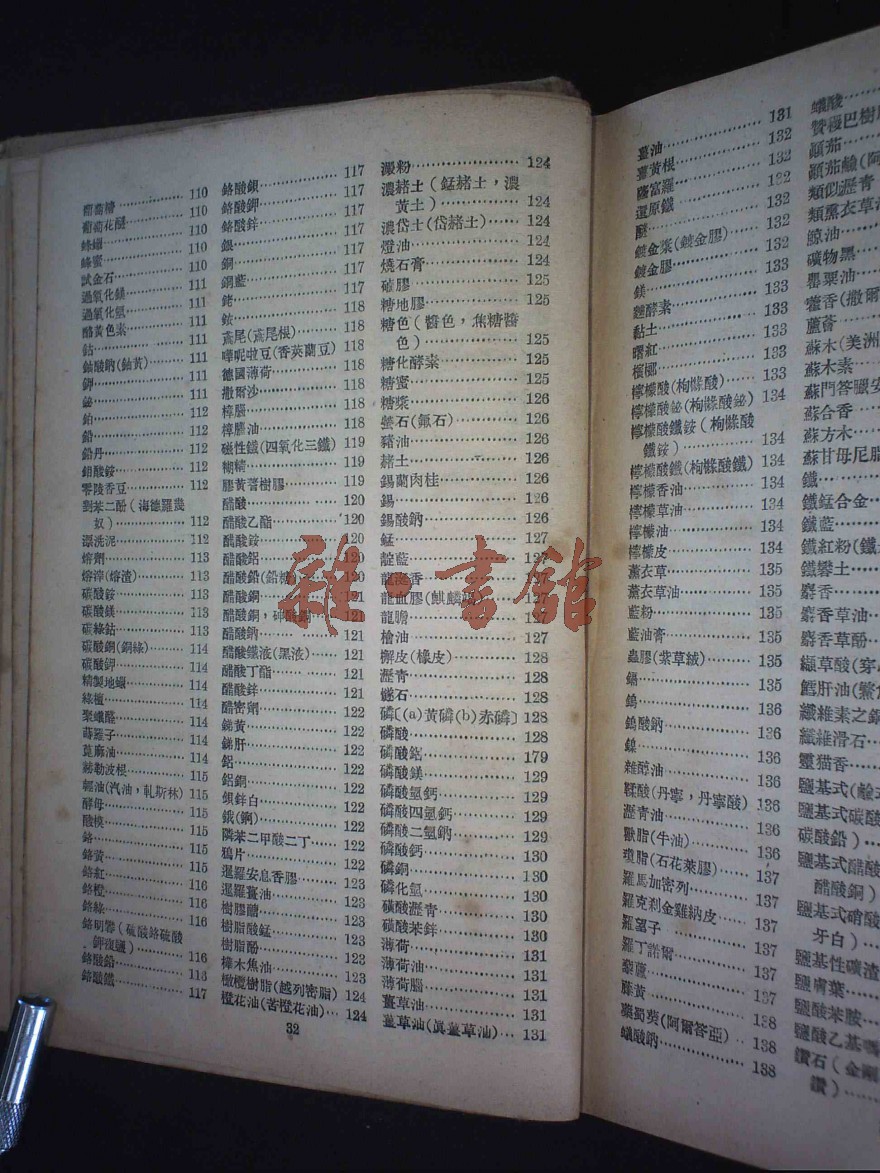 葡萄糖 110
葡萄花醚 110
蜂蠟 110
蜂蜜 110
試金石 110
過氧化鎂 111
過氧化氫 111
酪黃色素 111
鈷 111
鈾酸鈉(鈾黃) 111
鉀 111
鉍 111
鉑 112
鉛 112
鉛丹 112
鉬酸銨 112
零陵香豆 112
對苯二酚(海德羅幾
奴) 112
漂洗泥 112
熔劑 113
熔滓(熔渣) 113
碳酸銨 113
碳酸鎂 113
碳綠鈷 113
碳酸銅(銅綠) 114
碳酸鉀 114
精製地蠟 114
綠檀 114
聚蟻醛 114
蒔羅子 114
蓖麻油 114
赫勒波根 115
輕油(汽油,軋斯林) 115
酵母 115
酸模 115
鉻 115
鉻黃 115
鉻紅 116
鉻橙 116
鉻綠 116
鉻明礬(硫酸鉻硫酸
鉀復鹽) 116
鉻酸鉛 116
鉻酸鐵 117
鉻酸鋇 117
鉻酸鉀 117
鉻酸鋅 117
銀 117
銅 117
銅藍 117
銠 117
銨 118
鳶尾(鳶尾根) 118
嘩呢啦豆(香莢蘭豆) 118
德國薄荷 118
撒爾沙 118
樟腦 118
樟腦油 118
磁性鐵(四氧化三鐵) 119
糊精 119
膠黃蓍樹膠 119
醋酸 120
醋酸乙酯 120
醋酸銨 120
醋酸鋁 120
醋酸鉛(鉛糖) 120
醋酸銅 121
醋酸銅,砷酸銅 121
醋酸鈉 121
醋酸鐵液(黑液) 121
醋酸丁酯 121
醋酸鋅 121
醋密劑 122
銻黃 122
銻肝 122
鋁 122
鋁銅 122
鋇鋅白 122
鋨(錒) 122
隣苯二甲酸二丁 122
鴉片 122
暹羅安息香膠 122
暹羅薑油 123
樹膠醣 123
樹脂酸錳 123
樹脂酚 123
樟木焦油 123
橄欖樹脂(越列密脂) 124
橙花油(苦橙花油) 124
澱粉 124
濃赭土(錳赭土,濃
黃土) 124
濃岱土(岱赭土) 124
燈油 124
燒石膏 124
糖膠 125
糖地膠 125
糖色(醬色,焦糖醬
色) 125
糖化酵素 125
糖蜜 125
糖漿 126
螢石(氟石) 126
豬油 126
赭土 126
錫蘭肉桂 126
錫 126
錫酸鈉 126
錳 127
靛藍 127
龍涎香 127
龍血膠(麒麟竭) 127
龍膽 127
檜油 127
檞皮(橡皮) 128
瀝青 128
燧石 128
磷〔(a)黃磷(b)赤磷〕 128
磷酸 128
磷酸鋁 179
磷酸鎂 129
磷酸氫鈣 129
磷酸四氫鈣 129
磷酸二氫鈉 129
磷酸鈣 130
磷銅 130
磷化氫 130
磺酸瀝青 130
磺酸苯鋅 130
薄荷 130
薄荷油 131
薄荷腦 131
薑草油 131
薑草油(眞薑草油) 131
32
薑油 131
薑黃根 132
隆富羅 132
還原鐵 132
壓 132
鍍金漿(鍍金膠) 132
鍍金膠 133
鎂 133
鏈酵素 133
黏土 133
曙紅 133
檳榔 133
檸檬酸(枸櫞酸) 133
檸檬酸鉍(枸櫞酸鉍) 134
檸檬酸鐵銨(枸櫞酸
鐵銨) 134
檸檬酸鐵(枸櫞酸鐵) 134
檸檬香油 134
檸檬草油 134
檸檬油 134
檸檬皮 134
薰衣草 135
薰衣草油 135
藍粉 135
藍油膏 135
蟲膠(紫草絨) 135
鎘 135
鎢 135
鎢酸鈉 136
鎳 136
雜醇油 136
鞣酸(丹寧,丹寧酸) 136
瀝青油 136
獸脂(牛油) 136
瓊脂(石花菜膠) 137
羅馬加密列 137
羅克剎金雞納皮 137
羅望子 137
羅丁諾爾 137
藜蘆 137
藤黃 138
藥蜀葵(阿爾答亞) 138
蠟酸鈉 138
蟻酸
贊稷巴樹
顚茄
顚茄鹼(阿
類似瀝青
類薰衣草油
鯨油
礦物黑
罌粟油
藿香(撒爾
蘆薈
蘇木(美洲
蘇木素
蘇門答臘安
蘇合香
蘇方木
蘇甘毋尼脂
鐵
鐵錳合金
鐵藍
鐵紅粉(鐵
鐵礬土
麝香
麝香草油
麝香草酚
纈草酸(穿
鱈肝油(鱉魚
纖維素之銅
纖維滑石
靈猫香
鹽基式(鹼式
鹽基式碳酸
碳酸鉛)
鹽基式醋酸
醋酸銅)
鹽基式硝酸
牙白)
鹽基性礦渣
鹽膚葉
鹽酸苯胺
鹽酸乙基嗎
鑽石(金剛
鑽)
雜·書館